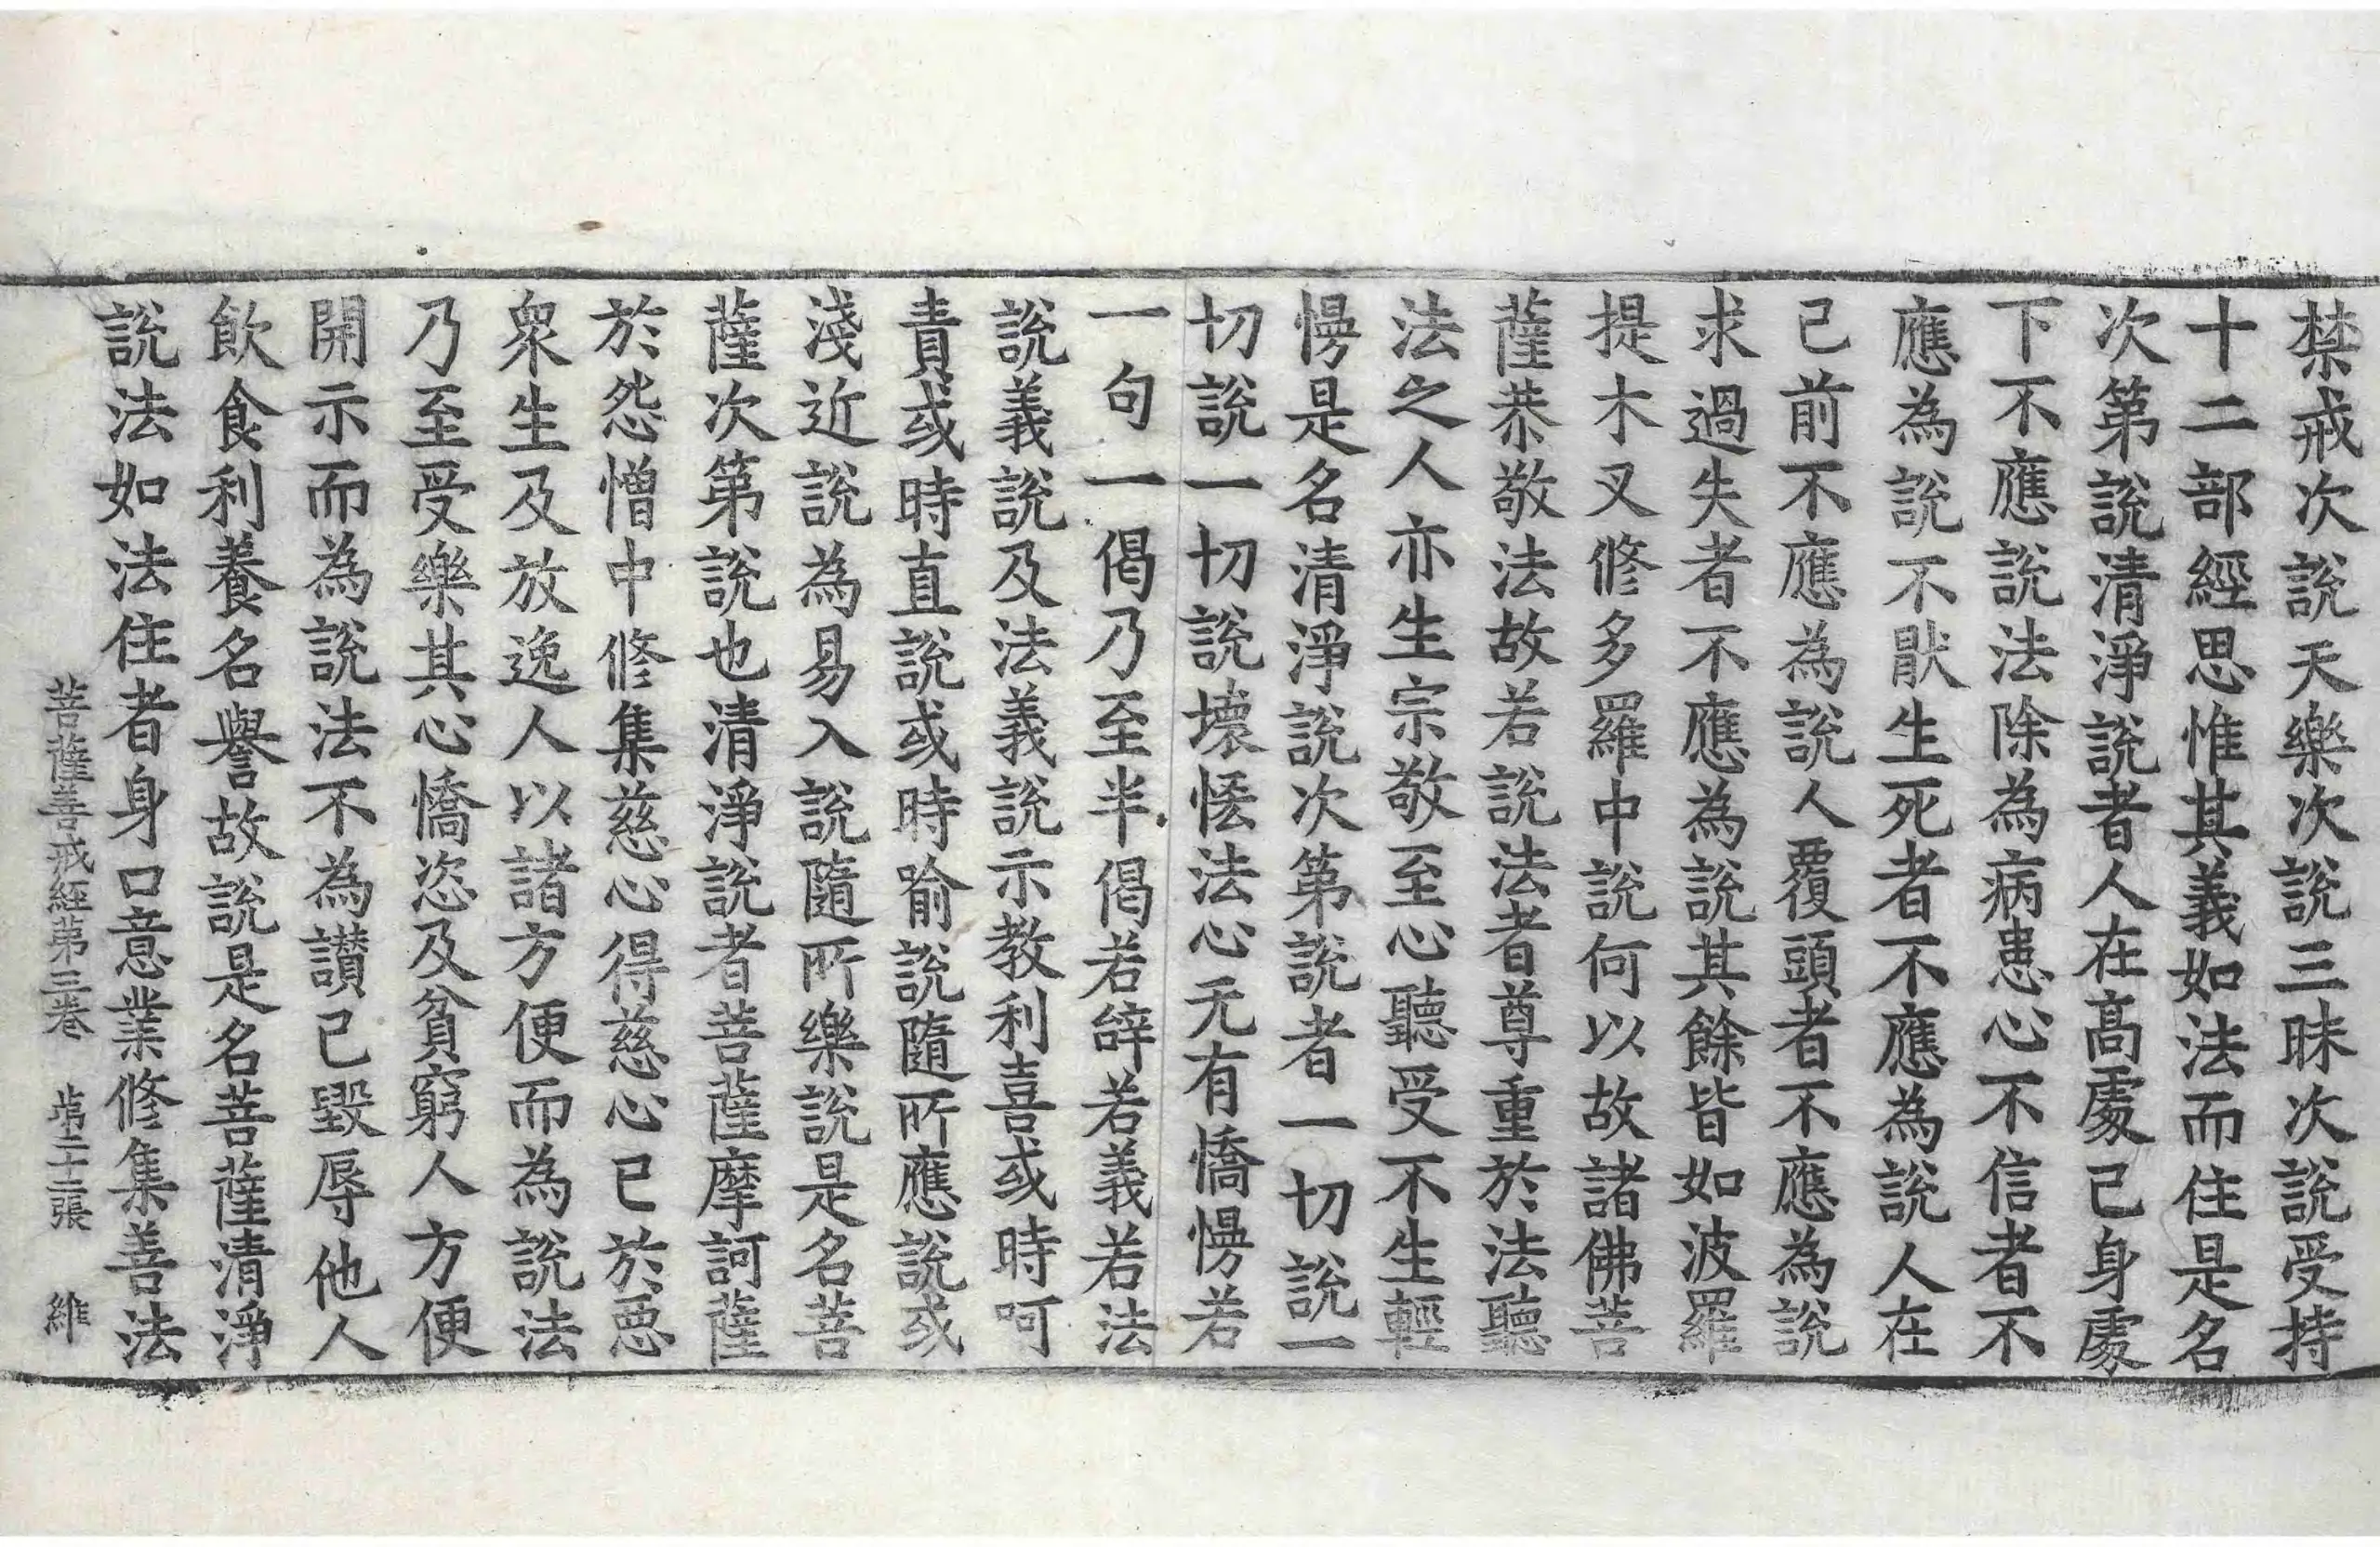 禁戒次說天樂次說三昧次說受持
十二部經思惟其義如法而住是名
次第說清淨說者人在高處己身處
下不應說法除為病患心不信者不
應為說不猒生死者不應為說人在
己前不應為說人覆頭者不應為說
求過失者不應為說其餘皆如波羅
提木叉修多羅中說何以故諸佛菩
薩恭敬法故若說法者尊重於法聽
法之人亦生宗敬至心聽受不生輕
慢是名清淨說次第說者一切說一
切說一切說壞悋法心无有憍慢若
一句一偈乃至半偈若辝若義若法
說義說及法義說示教利喜或時呵
責或時直說或時喻說隨所應說或
淺近說為易入說隨所樂說是名菩
薩次第說也清淨說者菩薩摩訶薩
於怨憎中修集慈心得慈心已於惡
衆生及放逸人以諸方便而為說法
乃至受樂其心憍恣及貧窮人方便
開示而為說法不為讃己毀辱他人
飲食利養名譽故說是名菩薩清淨
說法如法住者身口意業修集善法
菩薩善戒經第三卷 第二十二張 維